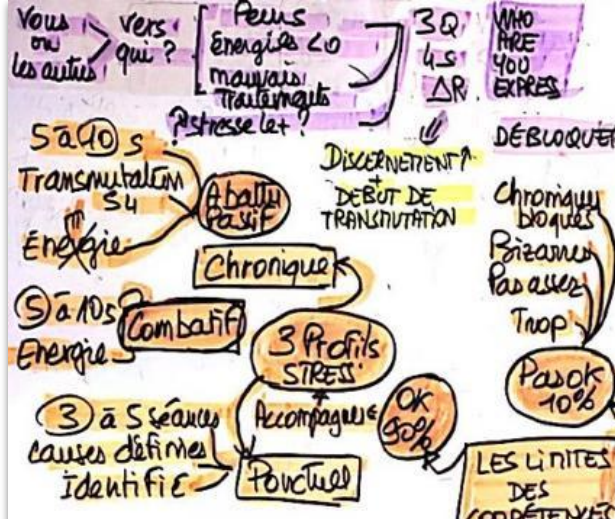 Vous
ou
les autres
vers
qui ?
Peurs
Énergies <0
mauvais
Traitements
? stresse le + ?
3Q
4S
ΔR
WHO
ARE
YOU
EXPRESS
DÉBLOQUER
DISCERNEMENT↑
+
DEBUT DE
TRANSMUTATION
5 à 10 s
Transmutation
S4
Énergie
Abattu
Passif
Chronique
5 à 10s ?
Energie
Combatif
3 Profils
STRESS
3 à 5 séances
causes définies
Identifié
Ponctuel
Accompagner
OK
90%
Chroniques
bloqués
Bizarres
Pas assez
Trop
Pas ok
10%
LES LIMITES
DES
COMPÉTENCES